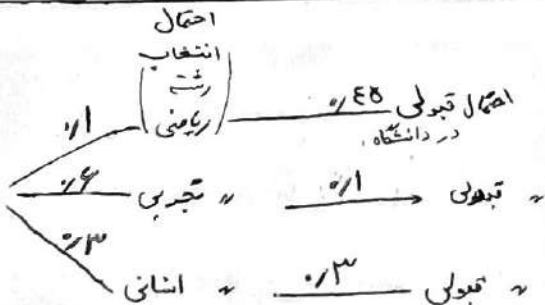 احتمال
انتخاب
رشته
ریاضی
۰/۱
۰/۴۵
احتمال قبولی
در دانشگاه
۰/۶
〃 تجربی
۰/۱
〃 قبولی
۰/۳
〃 انسانی
۰/۳
〃 قبولی